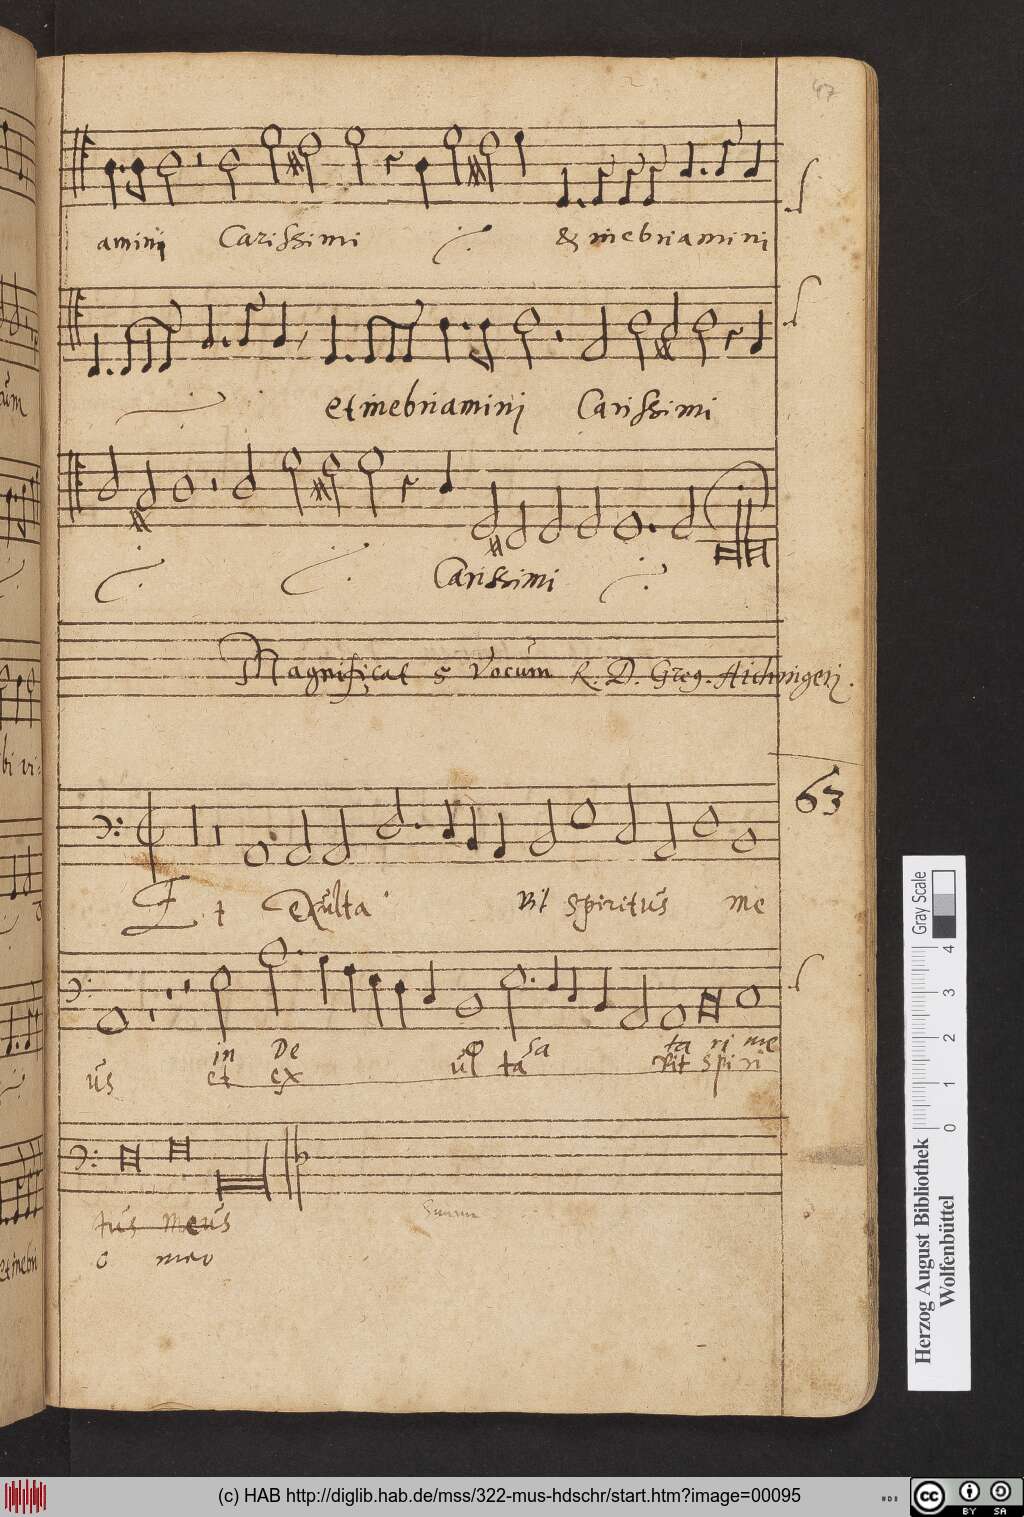 47
aminij Carissimi & inebriaminij
et inebriaminij Carissimi
Carissimi
Magnificat 5 Vocum R. D. Greg. Aichingerj.
63
Et exulta vit spiritus me
in De sa ta ri me
us et ex ul ta vit spi ri
tus meus
o meo
um
bi vi=
et inebri
Gray Scale
0 1 2 3 4
Herzog August Bibliothek
Wolfenbüttel
(c) HAB http://diglib.hab.de/mss/322-mus-hdschr/start.htm?image=00095
cc BY SA